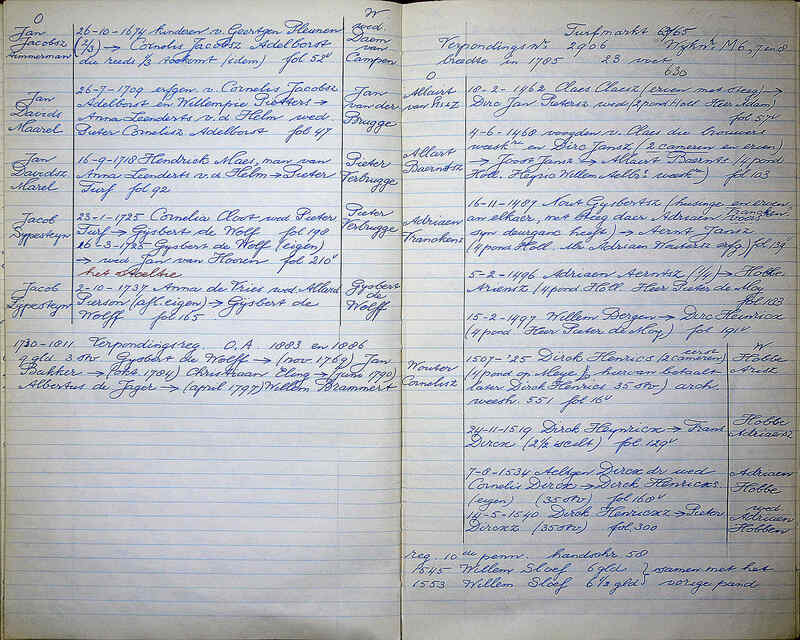 O
W
Jan
Jacobsz
Timmerman
26-10-1674 kinderen v. Geertgen Pleunen
(2/3) → Cornelis Jacobsz Adelborst
die reeds 1/3 toekomt (idem) fol 52v
wed.
Daem
van
Campen
Jan
Davids
Maarel
26-7-1709 erfgen. v. Cornelis Jacobsz
Adelborst en Willempie Pietters →
Anna Leenderts v.d Helm wed.
Pieter Cornelisz Adelborst fol 47
Jan
van der
Brugge
Jan
Davidsz
Marel
16-9-1718 Hendrick Maes, man van
Anna Leenderts v.d Helm → Pieter
Turf fol 92
Pieter
Verbrugge
Jacob
Sypesteyn
23-1-1725 Cornelia Cloot wed Pieter
Turf → Gysbert de Wolf fol 198
26-3-1725 Gysbert de Wolf (eigen)
→ wed. Jan van Hooren fol 210v
het steeltie
Pieter
Verbrugge
Jacob
Sypesteyn
2-10-1737 Anna de Vries wed. Allard
Pierson (afl. eigen) → Gysbert de
Wolff fol 165
Gysbert
de
Wolff
1730-1811 Verpondingsreg. O.A. 1883 en 1886
9 gld 3 stv Gysbert de Wolff → (nov 1769) Jan
Bakker → (1784) Christiaan Eling → (juni 1790)
Albertus de Jager → (april 1797) Willem Brammert
Turfmarkt 63/65
Verpondingsnr. 2906 Wyknr. M6, 7 en 8
breedte in 1785 23 voet
630
O
Allaert
van
18-2-1462 Claes Claesz (erven met steeg) →
Dirc Jan Pietersz wed (2 pond Holl Heer Adam)
fol 57v
Allert
Baerntsz
4-6-1468 voogden v. Claes die brouwers
weeskn en Dirc Jansz (2 cameren en erven)
→ Joost Jansz → Allaert Baernts (4 pond
Holl. Heysio Willem Aelbrs weskn) fol 103
Adriaen
Vrancken
16-11-1487 Nout Gysbertsz (husinge en erven
an elkaer, met steeg daer Adriaen Vrancken
syn deurganc heeft) → Aernt Jansz
(4 pond Holl. Mr Adriaen Woutersz erfg.) fol 134
5-2-1496 Adriaen Aerntsz → Hobbe
Arientz (4 pond Holl. Heer Pieter de Moy
fol 183
15-2-1497 Willem Bergen → Dirc Heinricx
(4 pond Heer Pieter de Moy) fol 191v
Wouter
Cornelisz
1507-'25 Dirck Henrics (2 cameren) eerst
(4 pond op Meye) hiervan betaalt
later Dirck Henrics 35 stv) arch.
weesh. 551 fol 16v
W
Hobbe
Arisz
24-11-1519 Dirck Heynricx → Frans
Dircx (2½ scelt) fol 129v
Hobbe
Adriaensz
7-8-1534 Aeltgen Dircx dr wed
Cornelis Dircx → Dirck Henricks
(eigen) (35 stv) fol 160v
Adriaen
Hobbe
14-5-1540 Dirck Henricxz → Pieter
Dircxz (35 stv) fol. 300
wed
Adriaen
Hobben
reg. 10de penn. handschr. 58
1545 Willem Sloef 6 gld } samen met het
1553 Willem Sloef 6½ gld } vorige pand